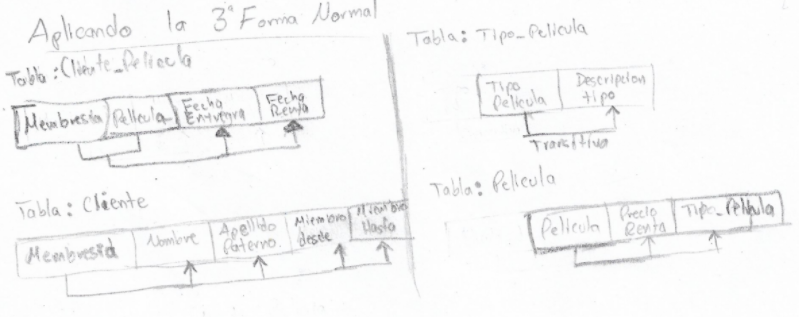 Aplicando la 3ª Forma Normal
Tabla: Cliente_Pelicula
Membresia Pelicula Fecha Entrega Fecha Renta
Tabla: Cliente
Membresia Nombre Apellido Paterno. Miembro desde Miembro Hasta
Tabla: Tipo_Pelicula
Tipo Pelicula Descripcion tipo
Transitivo
Tabla: Pelicula
Pelicula Precio Renta Tipo_Pelicula